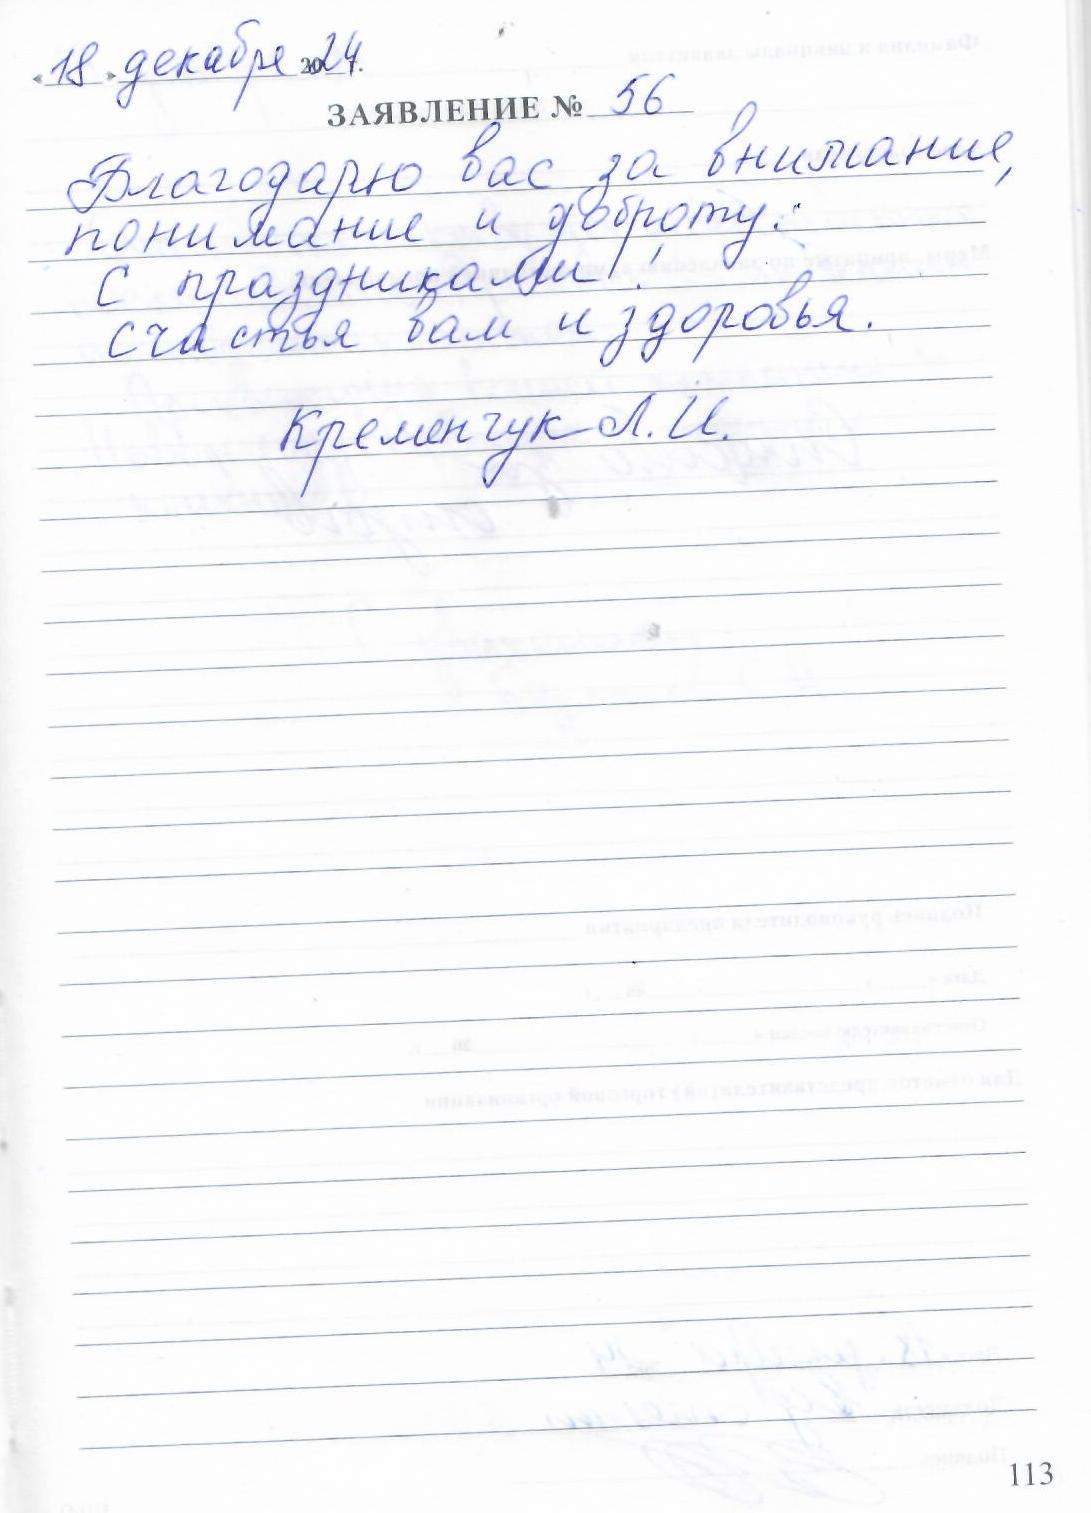 «18» декабре 2024г.
ЗАЯВЛЕНИЕ № 56
Благодарю вас за внимание,
понимание и доброту.
С праздниками!
Счастья вам и здоровья.
Кременчук Л.И.
113